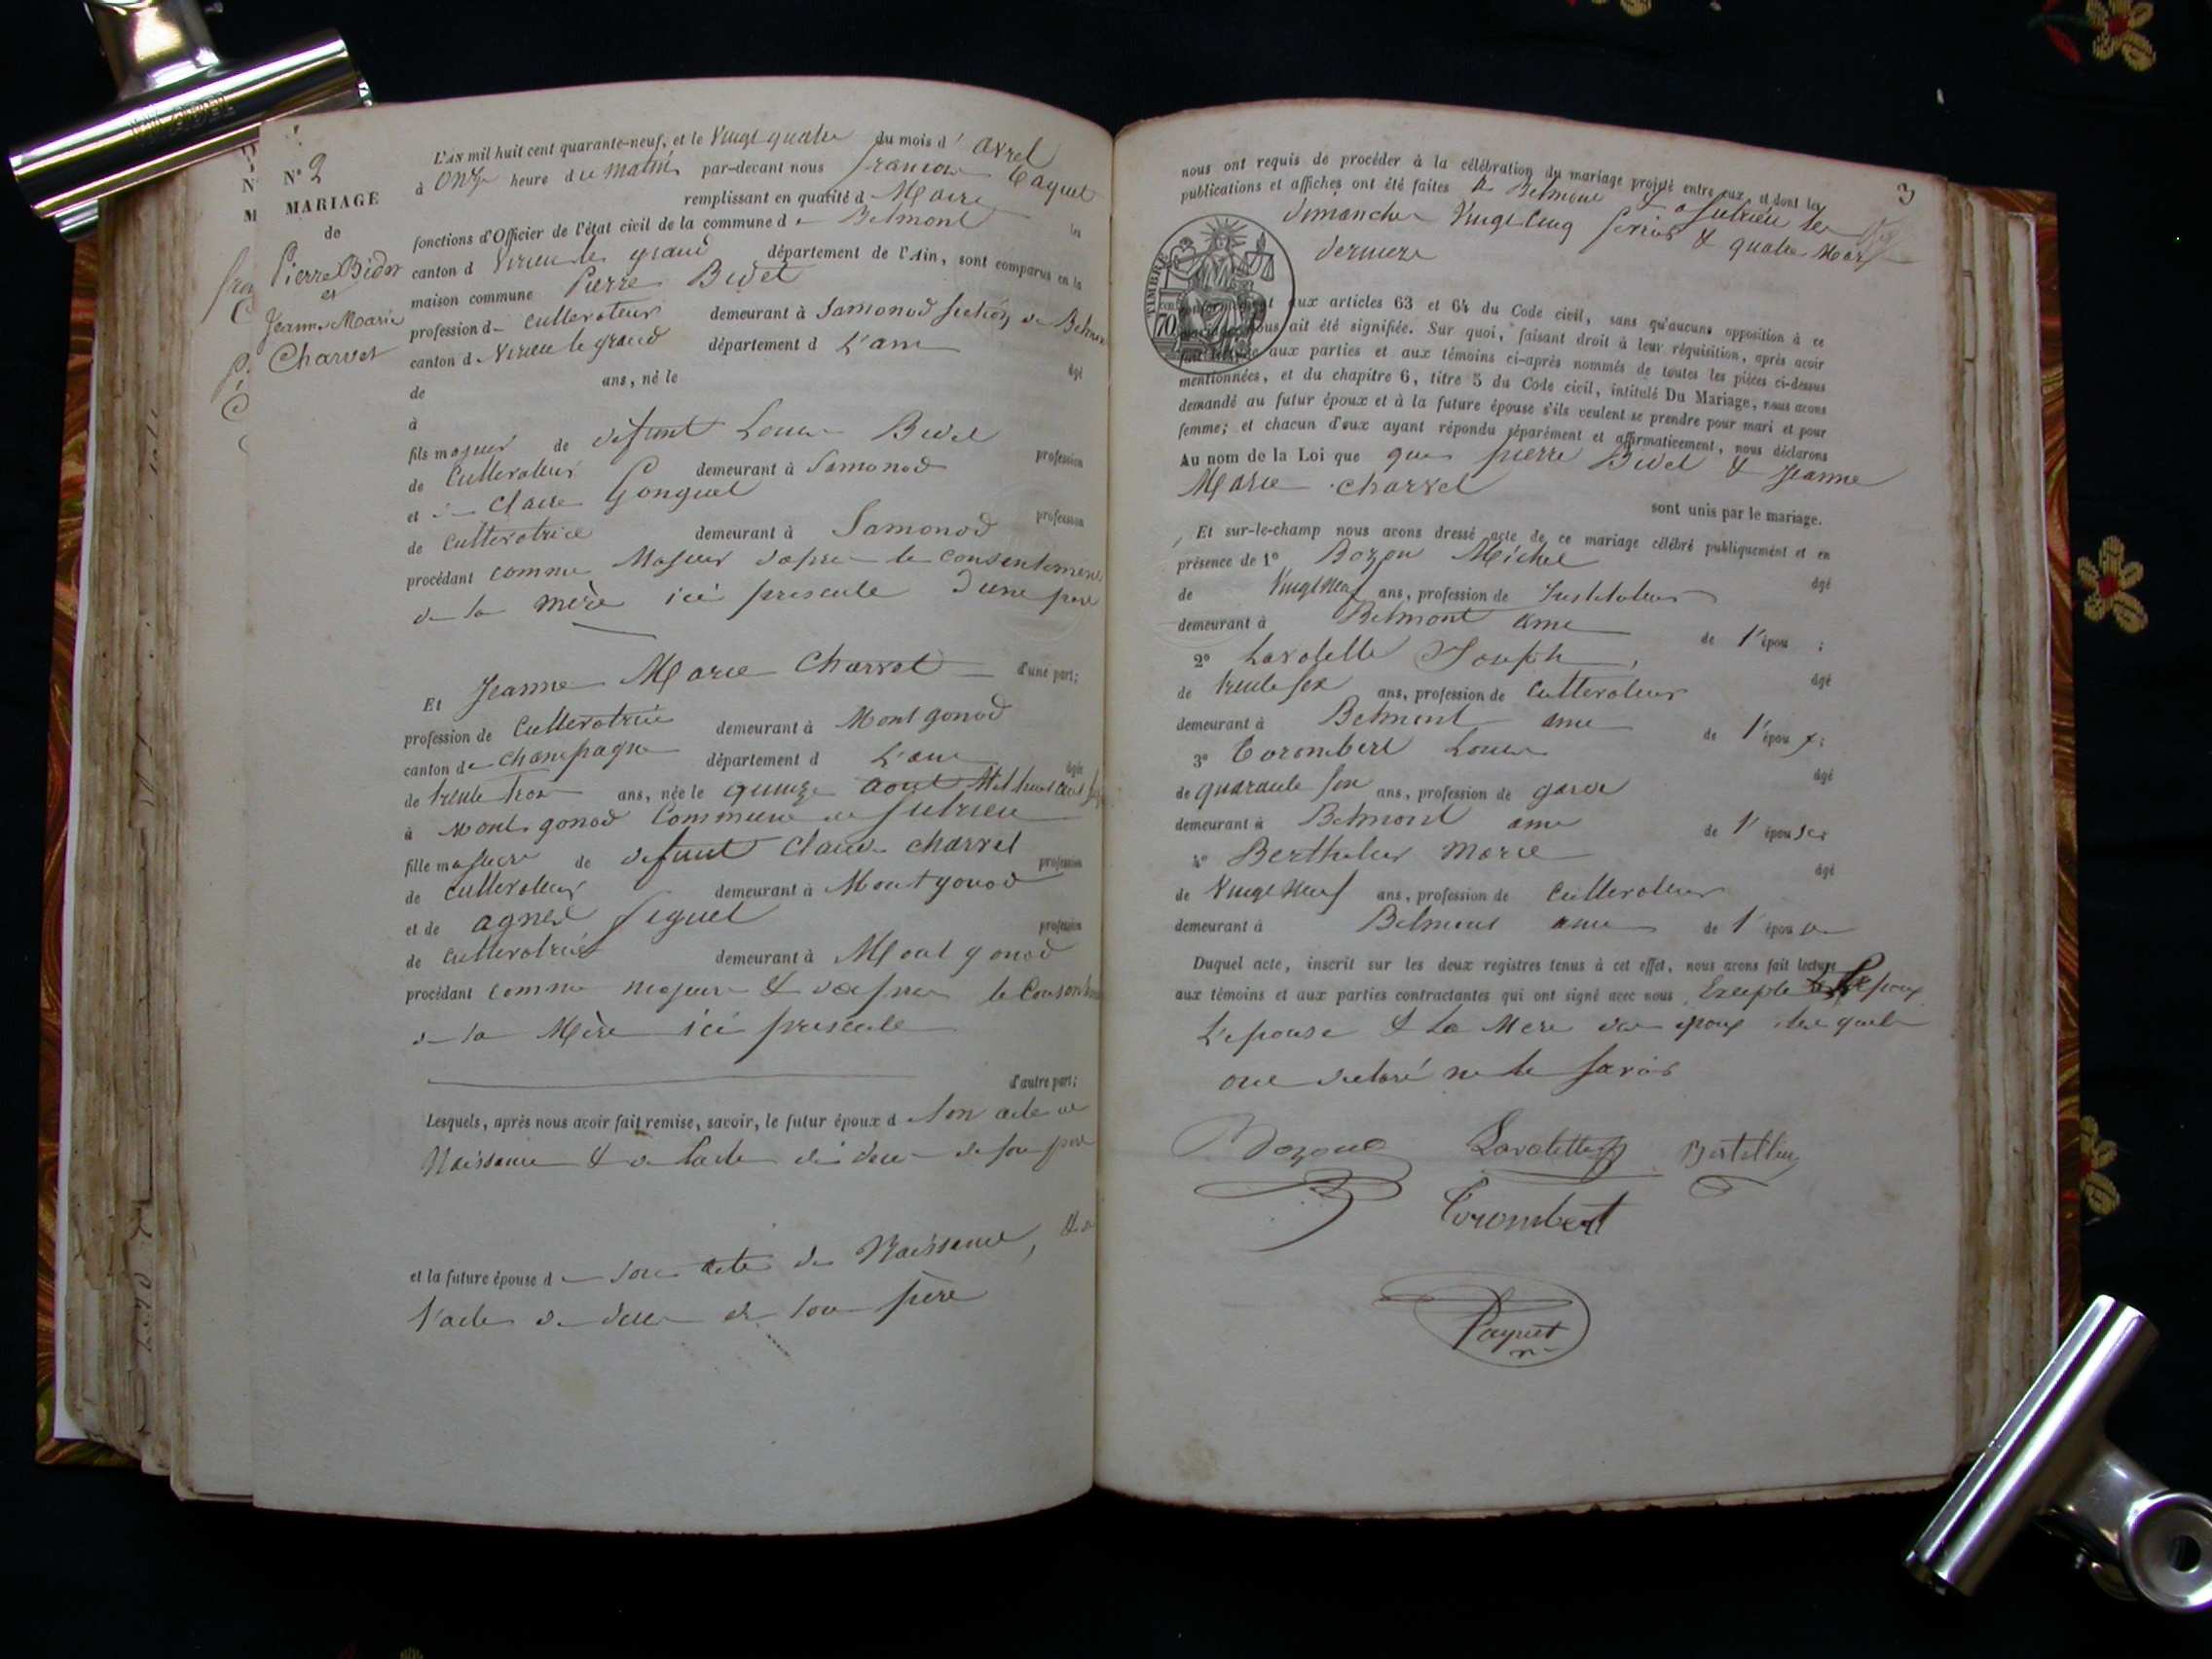 N° 2
MARIAGE
de
Pierre Bidet
et
Jeanne Marie
Charvet
L'AN mil huit cent quarante-neuf, et le Vingt quatre du mois d' avrel
à onze heure du matin par-devant nous francois
remplissant en qualité d Maire les
fonctions d'Officier de l'état civil de la commune de Belmont
canton d Virieu le grand département de l'Ain, sont comparus en la
maison commune Pierre Bidet
profession de cultivateur demeurant à Samonod section de Belmont
canton d Virieu le grand département d L'ain âgé
de ans, né le
à
fils majeur de defunt Louis Bidet profession
de Cultivateur demeurant à Samonod
et de Claire Gonguet profession
de Cultivatrice demeurant à Samonod
procédant comme Majeur dapres le consentement
de la mère ici presente d'une part
d'une part;
Et Jeanne Marie Charvet
profession de Cultivatrice demeurant à Montgonod
canton de champagne département d L'ain âgée
de trente trois ans, née le quinze aout Mil huit cent
à Mont gonod Commune de Sutrieu
fille majeure de defunt Claude charvet profession
de cultivateur demeurant à Montgonod
et de agnes profession
de cultivatrice demeurant à Mont gonod
procédant comme majeure & dapres le
de la Mère ici presente
d'autre part;
Lesquels, après nous avoir fait remise, savoir, le futur époux d Son acte de
Naissance & de l'acte de deces de son pere
et la future épouse de son acte de Naissance, & de
l'acte de deces de son père
3
nous ont requis de procéder à la célébration du mariage projeté entre eux, et dont les
publications et affiches ont été faites à Belmont & a Sutrieu les
dimanche Vingt cinq & quatre Mars
derniers
TIMBRE
70
aux articles 63 et 64 du Code civil, sans qu'aucune opposition à ce
nous ait été signifiée. Sur quoi, faisant droit à leur réquisition, après avoir
aux parties et aux témoins ci-après nommés de toutes les pièces ci-dessus
mentionnées, et du chapitre 6, titre 5 du Code civil, intitulé Du Mariage, nous avons
demandé au futur époux et à la future épouse s'ils veulent se prendre pour mari et pour
femme; et chacun d'eux ayant répondu séparément et affirmativement, nous déclarons
Au nom de la Loi que que pierre Bidet & Jeanne
Marie charvet
sont unis par le mariage.
Et sur-le-champ nous avons dressé acte de ce mariage célébré publiquement et en
présence de 1° Bozon Michel âgé
de Vingt neuf ans, profession de Instituteur
demeurant à Belmont ami de l'épou ;
2° Lavolette Joseph, âgé
de trente six ans, profession de Cultivateur
demeurant à Belmont ami de l'épou x;
3° Corombert Louis âgé
de quarante six ans, profession de garde
demeurant à Belmont ami de l'épou
4° Berthelier Marie âgé
de Vingt Neuf ans, profession de Cultivateur
demeurant à Belmont ami de l'épou
Duquel acte, inscrit sur les deux registres tenus à cet effet, nous avons fait lecture
aux témoins et aux parties contractantes qui ont signé avec nous Excepté
L'epouse & la Mere des epoux lesquels
ont declaré ne le savoir
Bozon Lavolette
Corombert